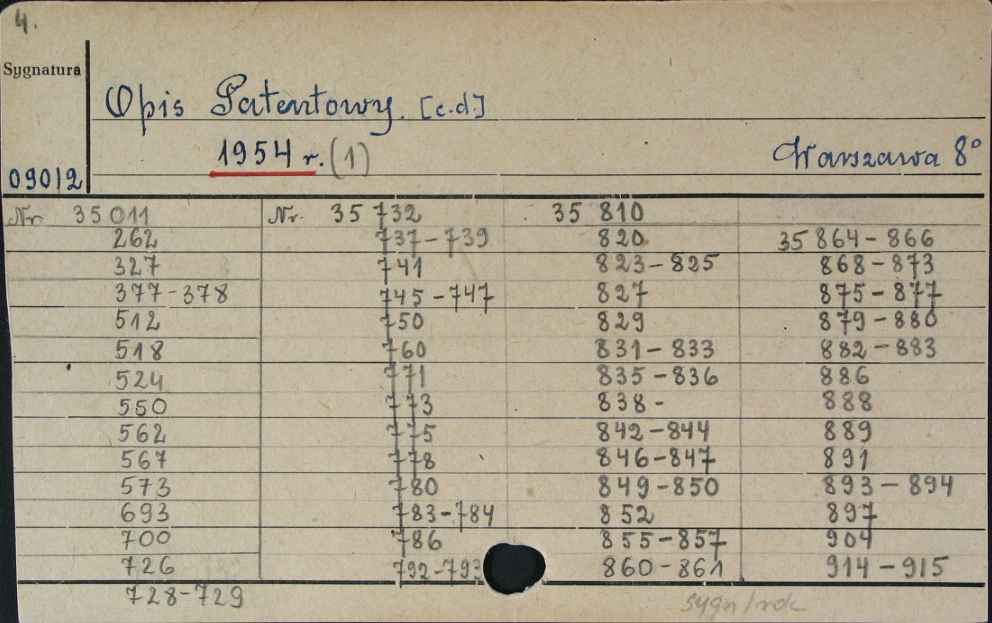 4.
Sygnatura
Opis Patentowy. [c.d]
1954 r. (1)
Warszawa 8°
09012
Nr. 35 011
262
327
377-378
512
518
524
550
562
567
573
693
700
726
728-729
Nr. 35 732
737-739
741
745-747
750
760
771
773
775
778
780
783-784
786
792-793
35 810
820
823-825
827
829
831-833
835-836
838-
842-844
846-847
849-850
852
855-857
860-861
35 864-866
868-873
875-877
879-880
882-883
886
888
889
891
893-894
897
904
914-915
sygn/rok